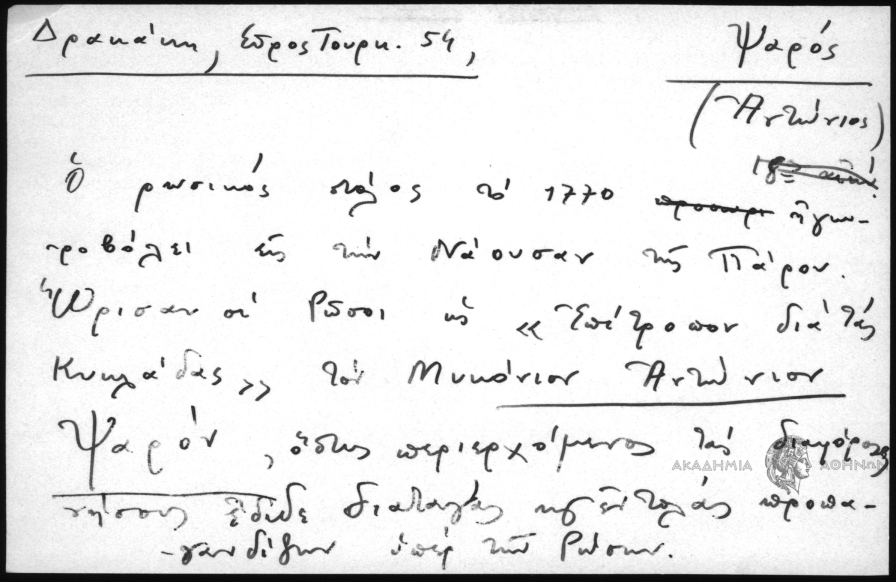 Δρακάκη, Σύρος Τουρκ. 54,
Ψαρός
(Ἀντώνιος)
Ὁ ρωσικός στόλος τό 1770 ἠγκυ-
ροβόλει εἰς τήν Νάουσαν τῆς Πάρου.
Ὥρισαν οἱ Ρῶσοι ὡς «Ἐπίτροπον διά τάς
Κυκλάδας» τόν Μυκόνιον Ἀντώνιον
Ψαρόν, ὅστις περιερχόμενος τάς διαφόρους
νήσους ἔδιδε διαταγάς καί ἐντολάς προπα-
γανδίζων ὑπέρ τῶν Ρώσων.
ΑΚΑΔΗΜΙΑ ΑΘΗΝΩΝ